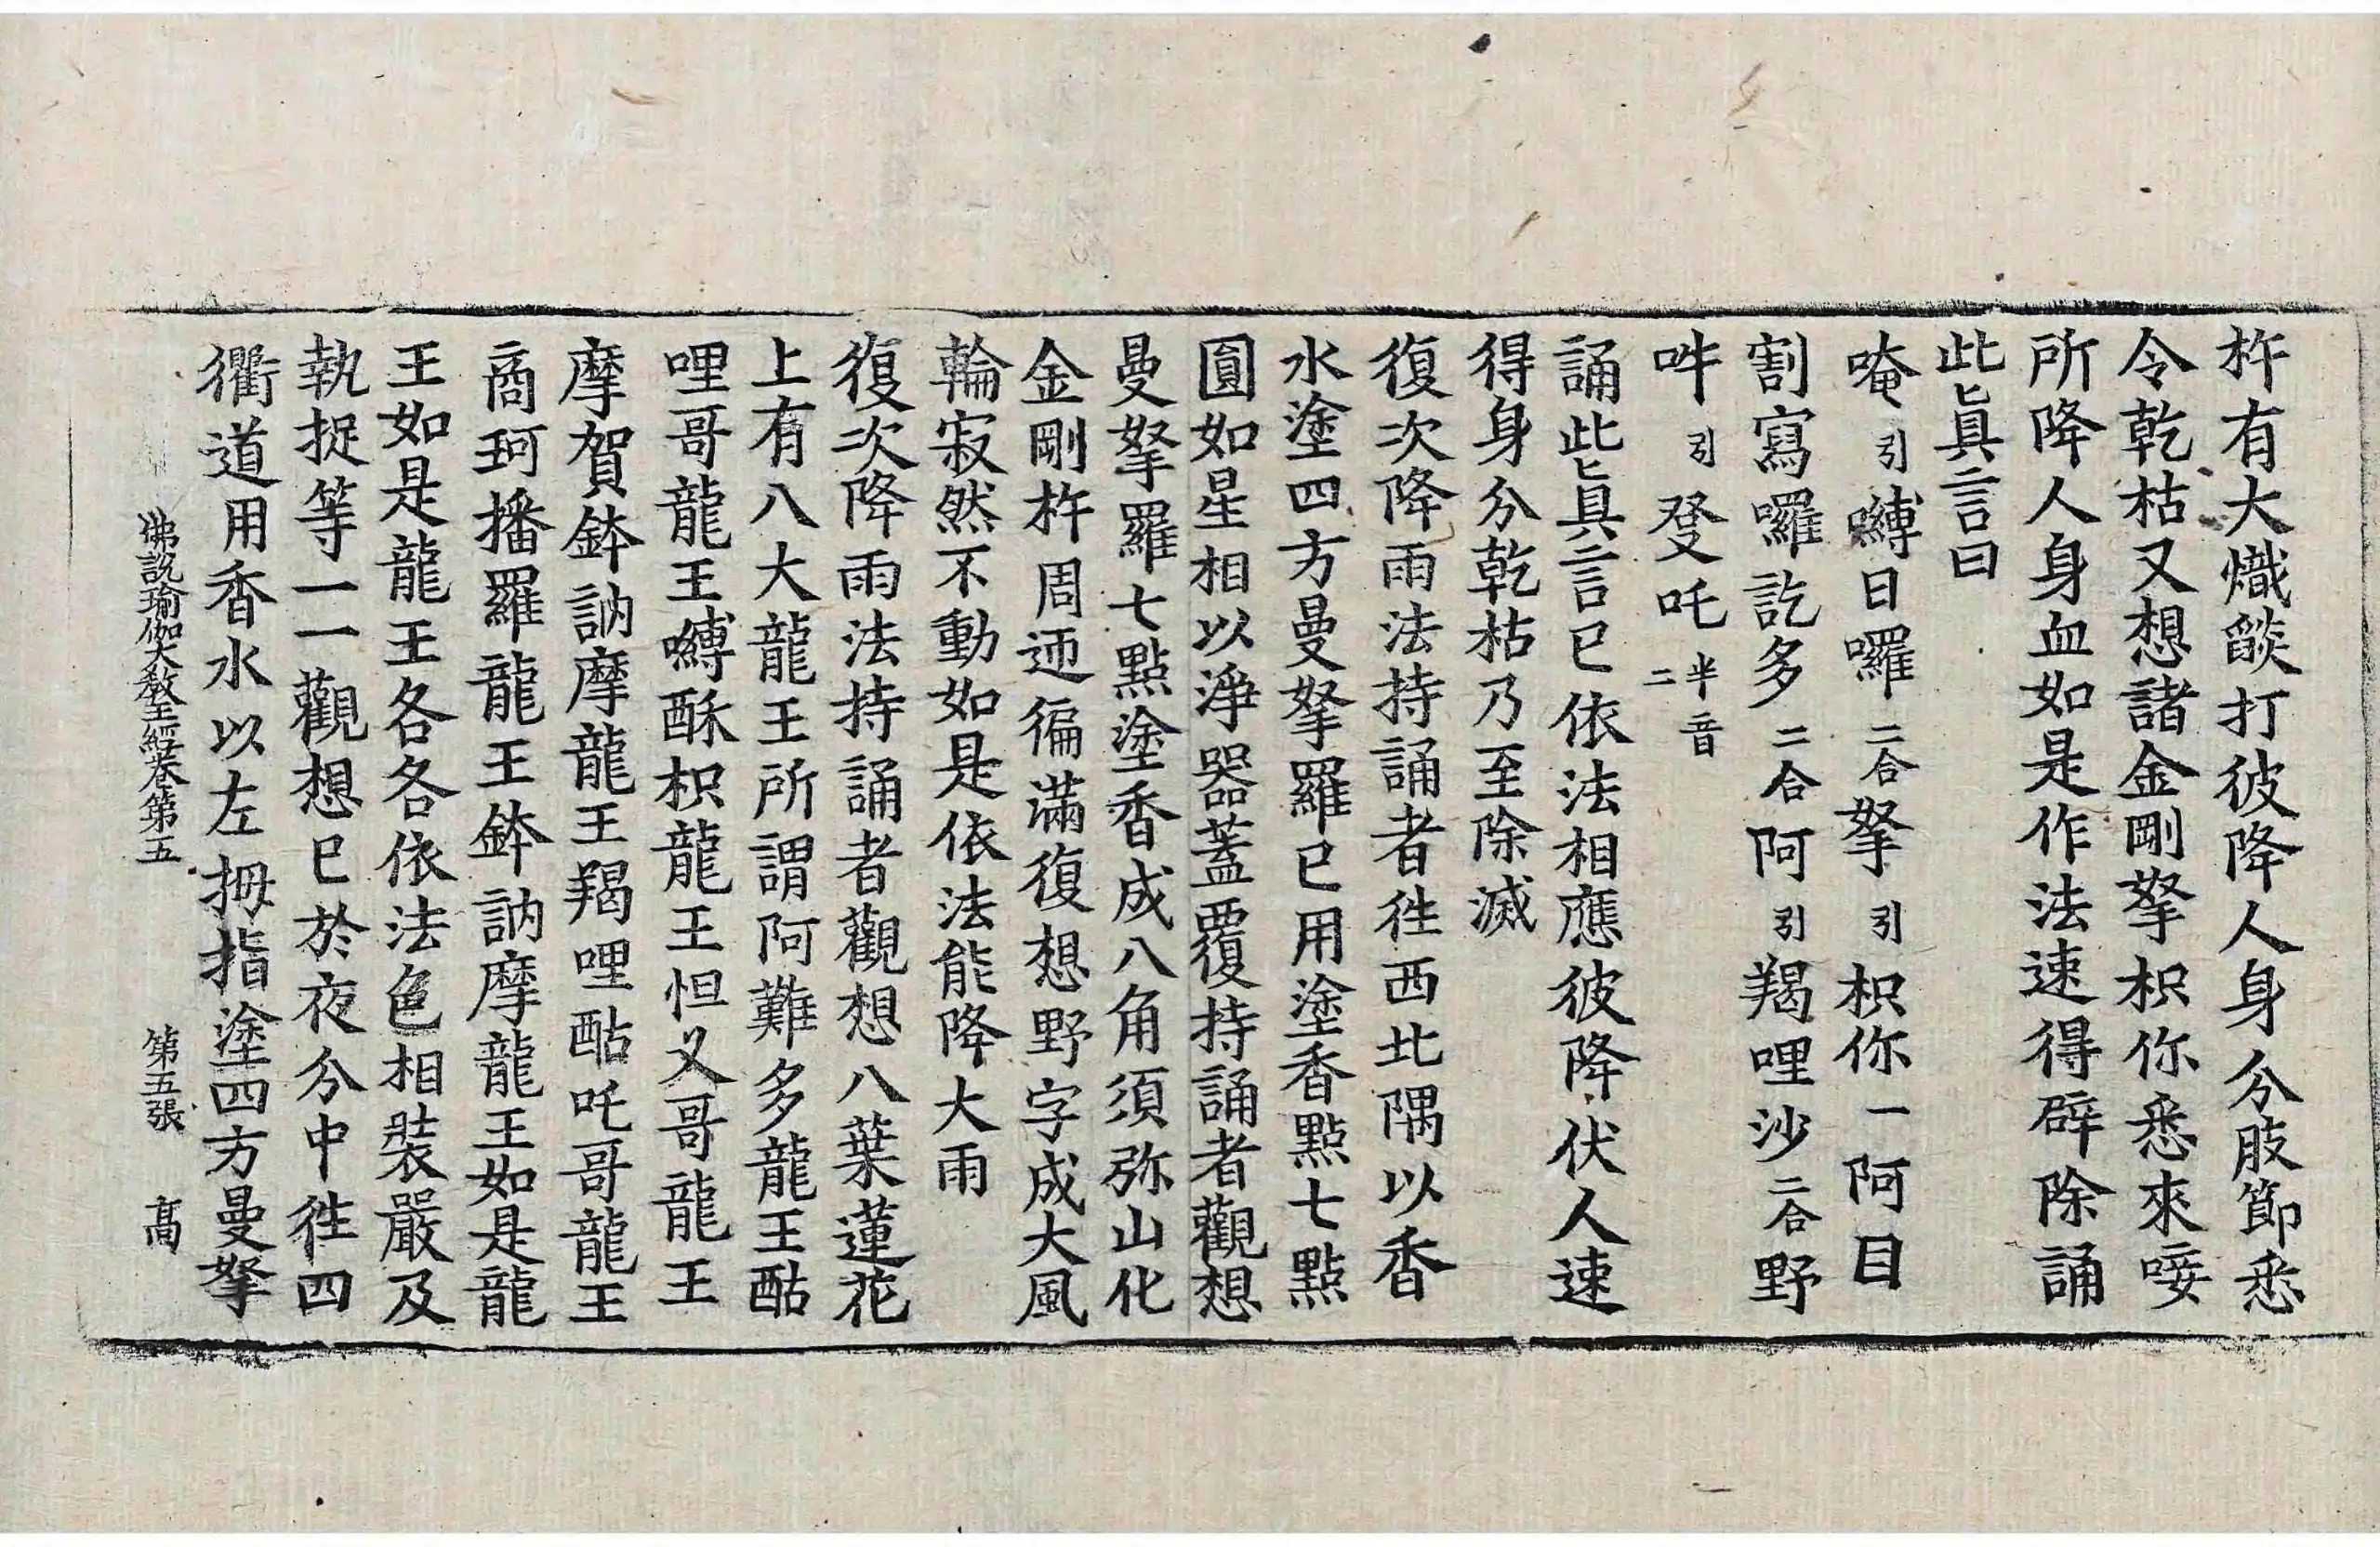 杵有大熾燄打彼降人身分肢節悉
令乾枯又想諸金剛拏枳你悉來唼
所降人身血如是作法速得辟除誦
此眞言曰
唵引嚩日囉二合拏引枳你一阿目
割寫囉訖多二合阿引羯哩沙二合野
吽引癹吒半音二
誦此眞言已依法相應彼降伏人速
得身分乾枯乃至除滅
復次降雨法持誦者徃西北隅以香
水塗四方曼拏羅已用塗香點七點
圓如星相以淨器蓋覆持誦者觀想
曼拏羅七點塗香成八角須弥山化
金剛杵周迊徧滿復想野字成大風
輪寂然不動如是依法能降大雨
復次降雨法持誦者觀想八葉蓮花
上有八大龍王所謂阿難多龍王酤
哩哥龍王嚩酥枳龍王怛叉哥龍王
摩賀鉢訥摩龍王羯哩酤吒哥龍王
商珂播羅龍王鉢訥摩龍王如是龍
王如是龍王各各依法色相裝嚴及
執捉等一一觀想已於夜分中徃四
衢道用香水以左拇指塗四方曼拏
佛說瑜伽大教王經卷第五 第五張 髙